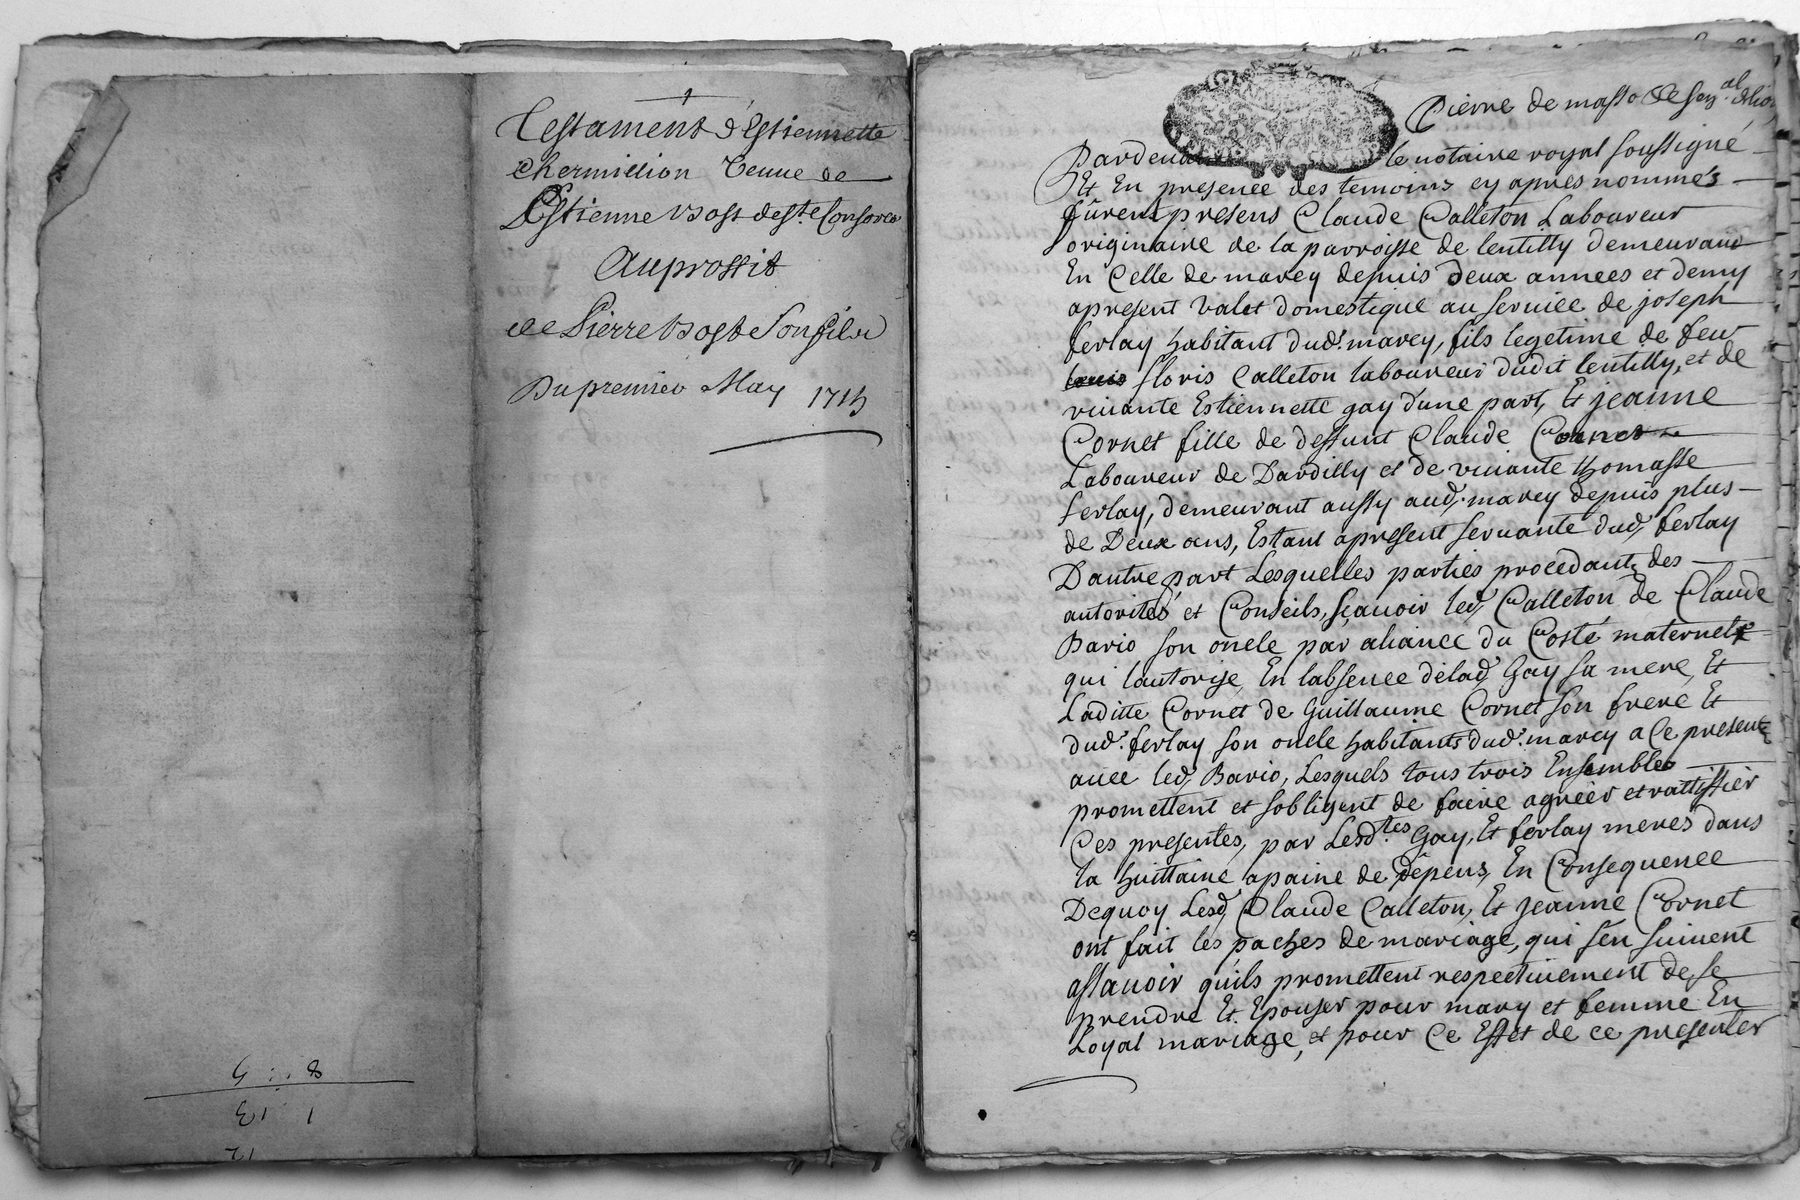 Testament d'Estiennette
Chermillion veuue de
Estienne Bost de st. Consorce
Au proffit
de Pierre Bost son fils
Du premier May 1715
5 8
13 1
12
Pierre de masso
Pardeuant le notaire royal soussigné
Et En presence des temoins cy apres nommés
fûrent presens Claude Calleton Laboureur
originaire de la parroisse de lentilly demeurant
En Celle de marcy depuis deux années et demy
apresent valet domestique au seruice de joseph
ferlay habitant dud. marcy, fils legetime de feu
floris Calleton laboureur dudit lentilly, et de
viuante Estiennette gay d'une part, Et jeanne
Cornet fille de deffunt Claude Cornet
Laboureur de Dardilly et de viuante thomasse
ferlay, demeurant aussy aud. marcy depuis plus
de Deux ans, Estant apressent seruante dud. ferlay
D'autre part Lesquelles parties procedants des
autorités et Conseils, sçauoir led. Calleton de Claude
Bario son oncle par aliance du Costé maternel
qui lautorise, En labsence delad. Gay sa mere, Et
Laditte Cornet de Guillaume Cornet son frere Et
dud. ferlay son oncle habitants dud. marcy a Ce present
auec led. Bario, Lesquels tous trois Ensembles
promettent et sobligent de faire agréer et rattiffier
Ces presentes, par Lesd.tes Gay, Et ferlay meres dans
la huittaine apaine de dépens, En Consequence
Dequoy Lesd. Claude Calleton, Et jeanne Cornet
ont fait les paches de mariage, qui s'en suiuent
assauoir qu'ils promettent respectiuement de se
prendre Et Epouser pour mary et femme En
Loyal mariage, et pour Ce Effet de ce presenter